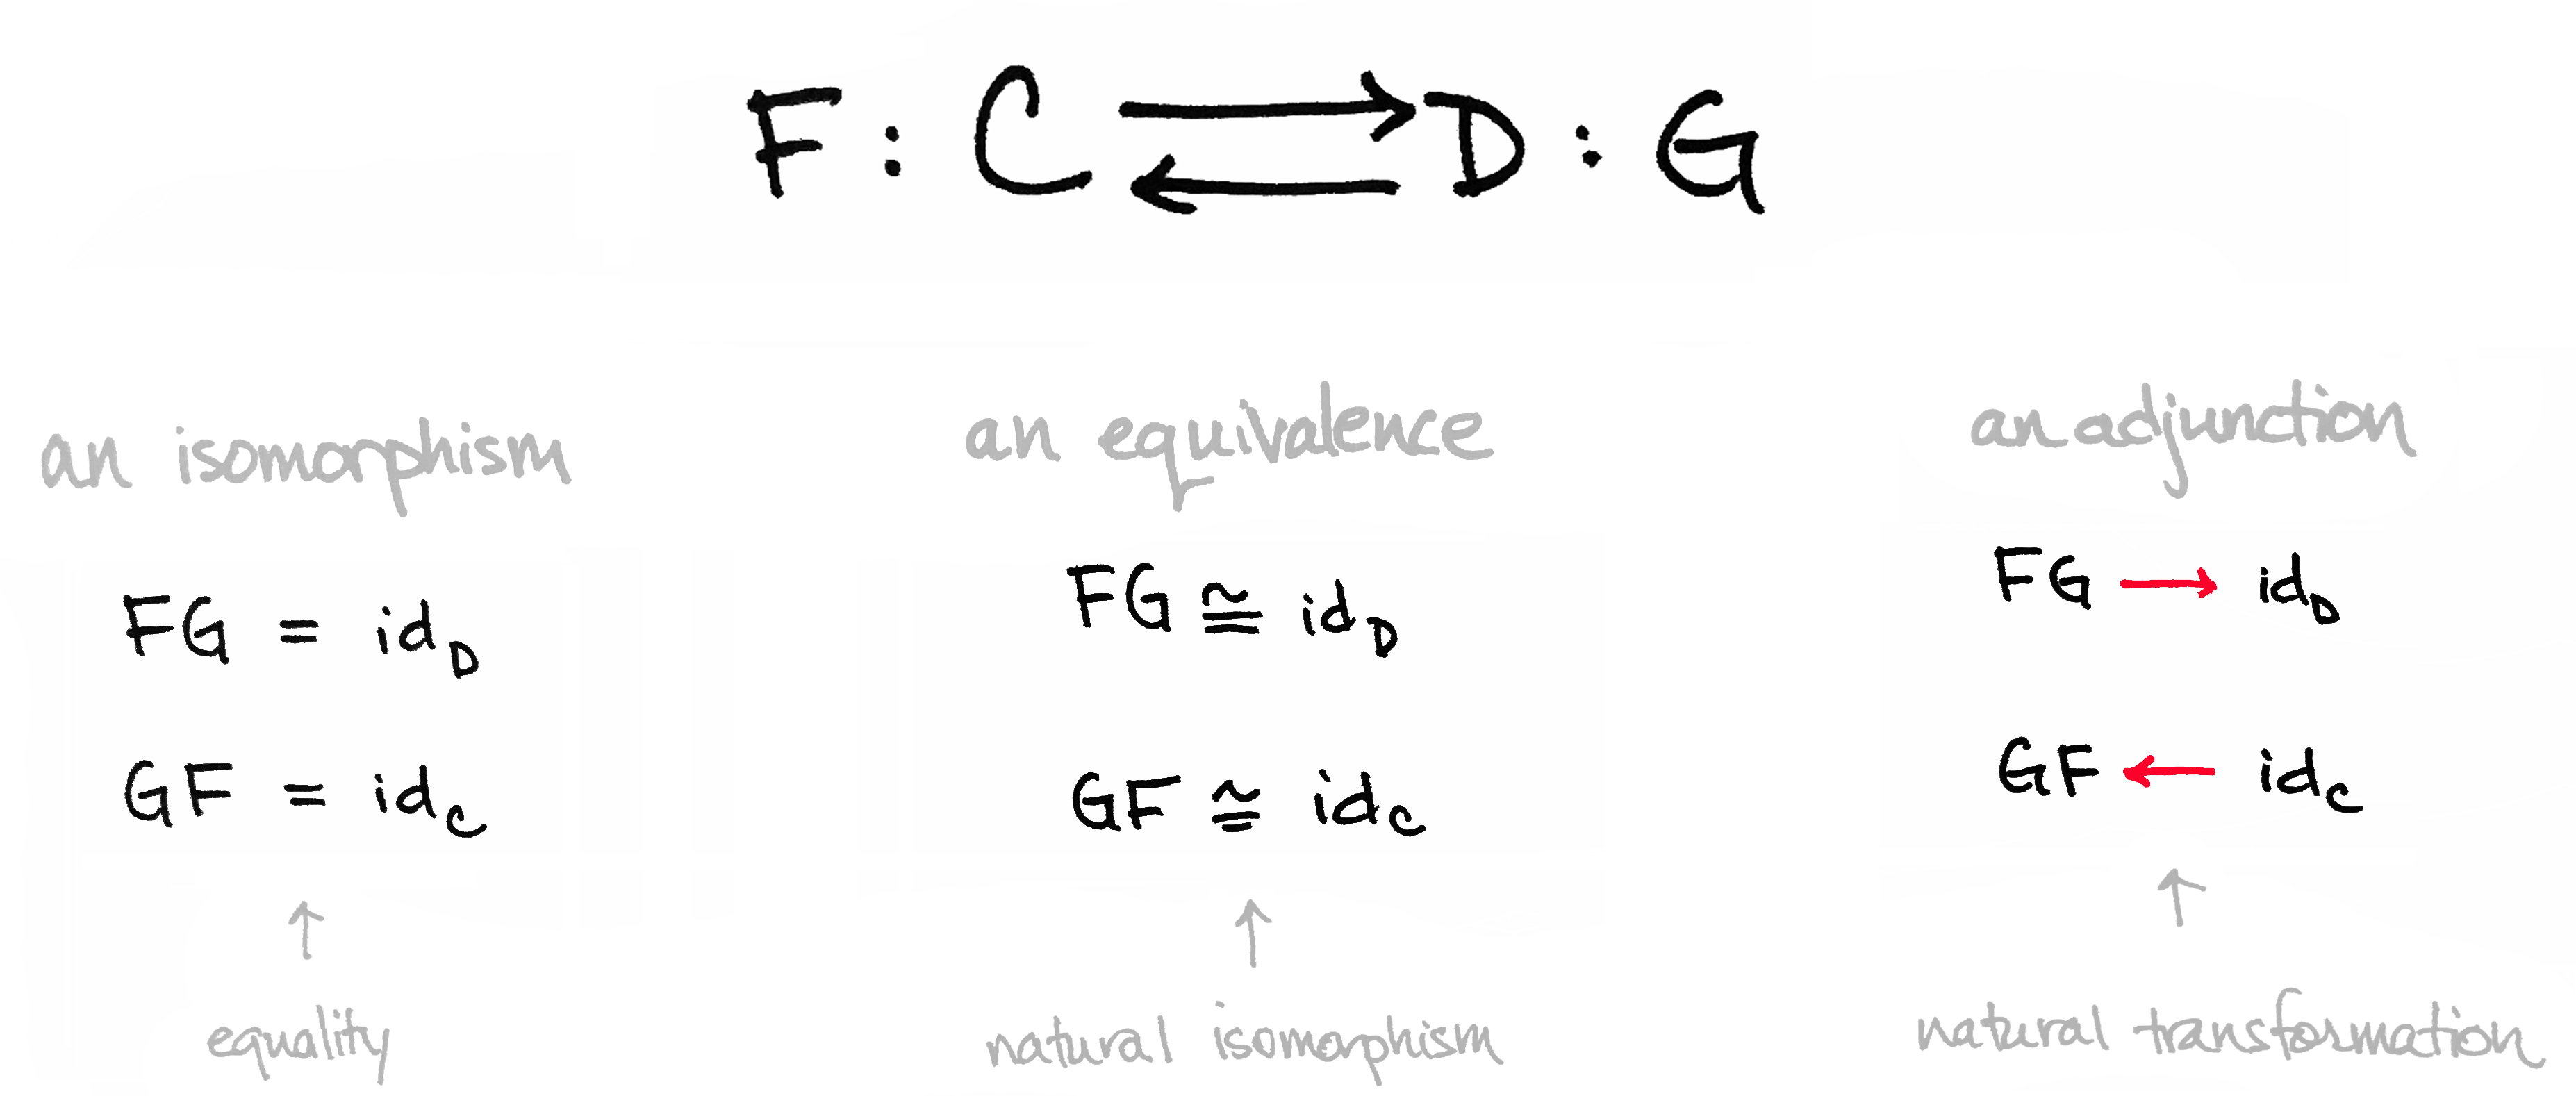 F : C ⇄ D : G
an isomorphism
FG = id_D
GF = id_C
↑
equality
an equivalence
FG ≅ id_D
GF ≅ id_C
↑
natural isomorphism
an adjunction
FG → id_D
GF ← id_C
↑
natural transformation